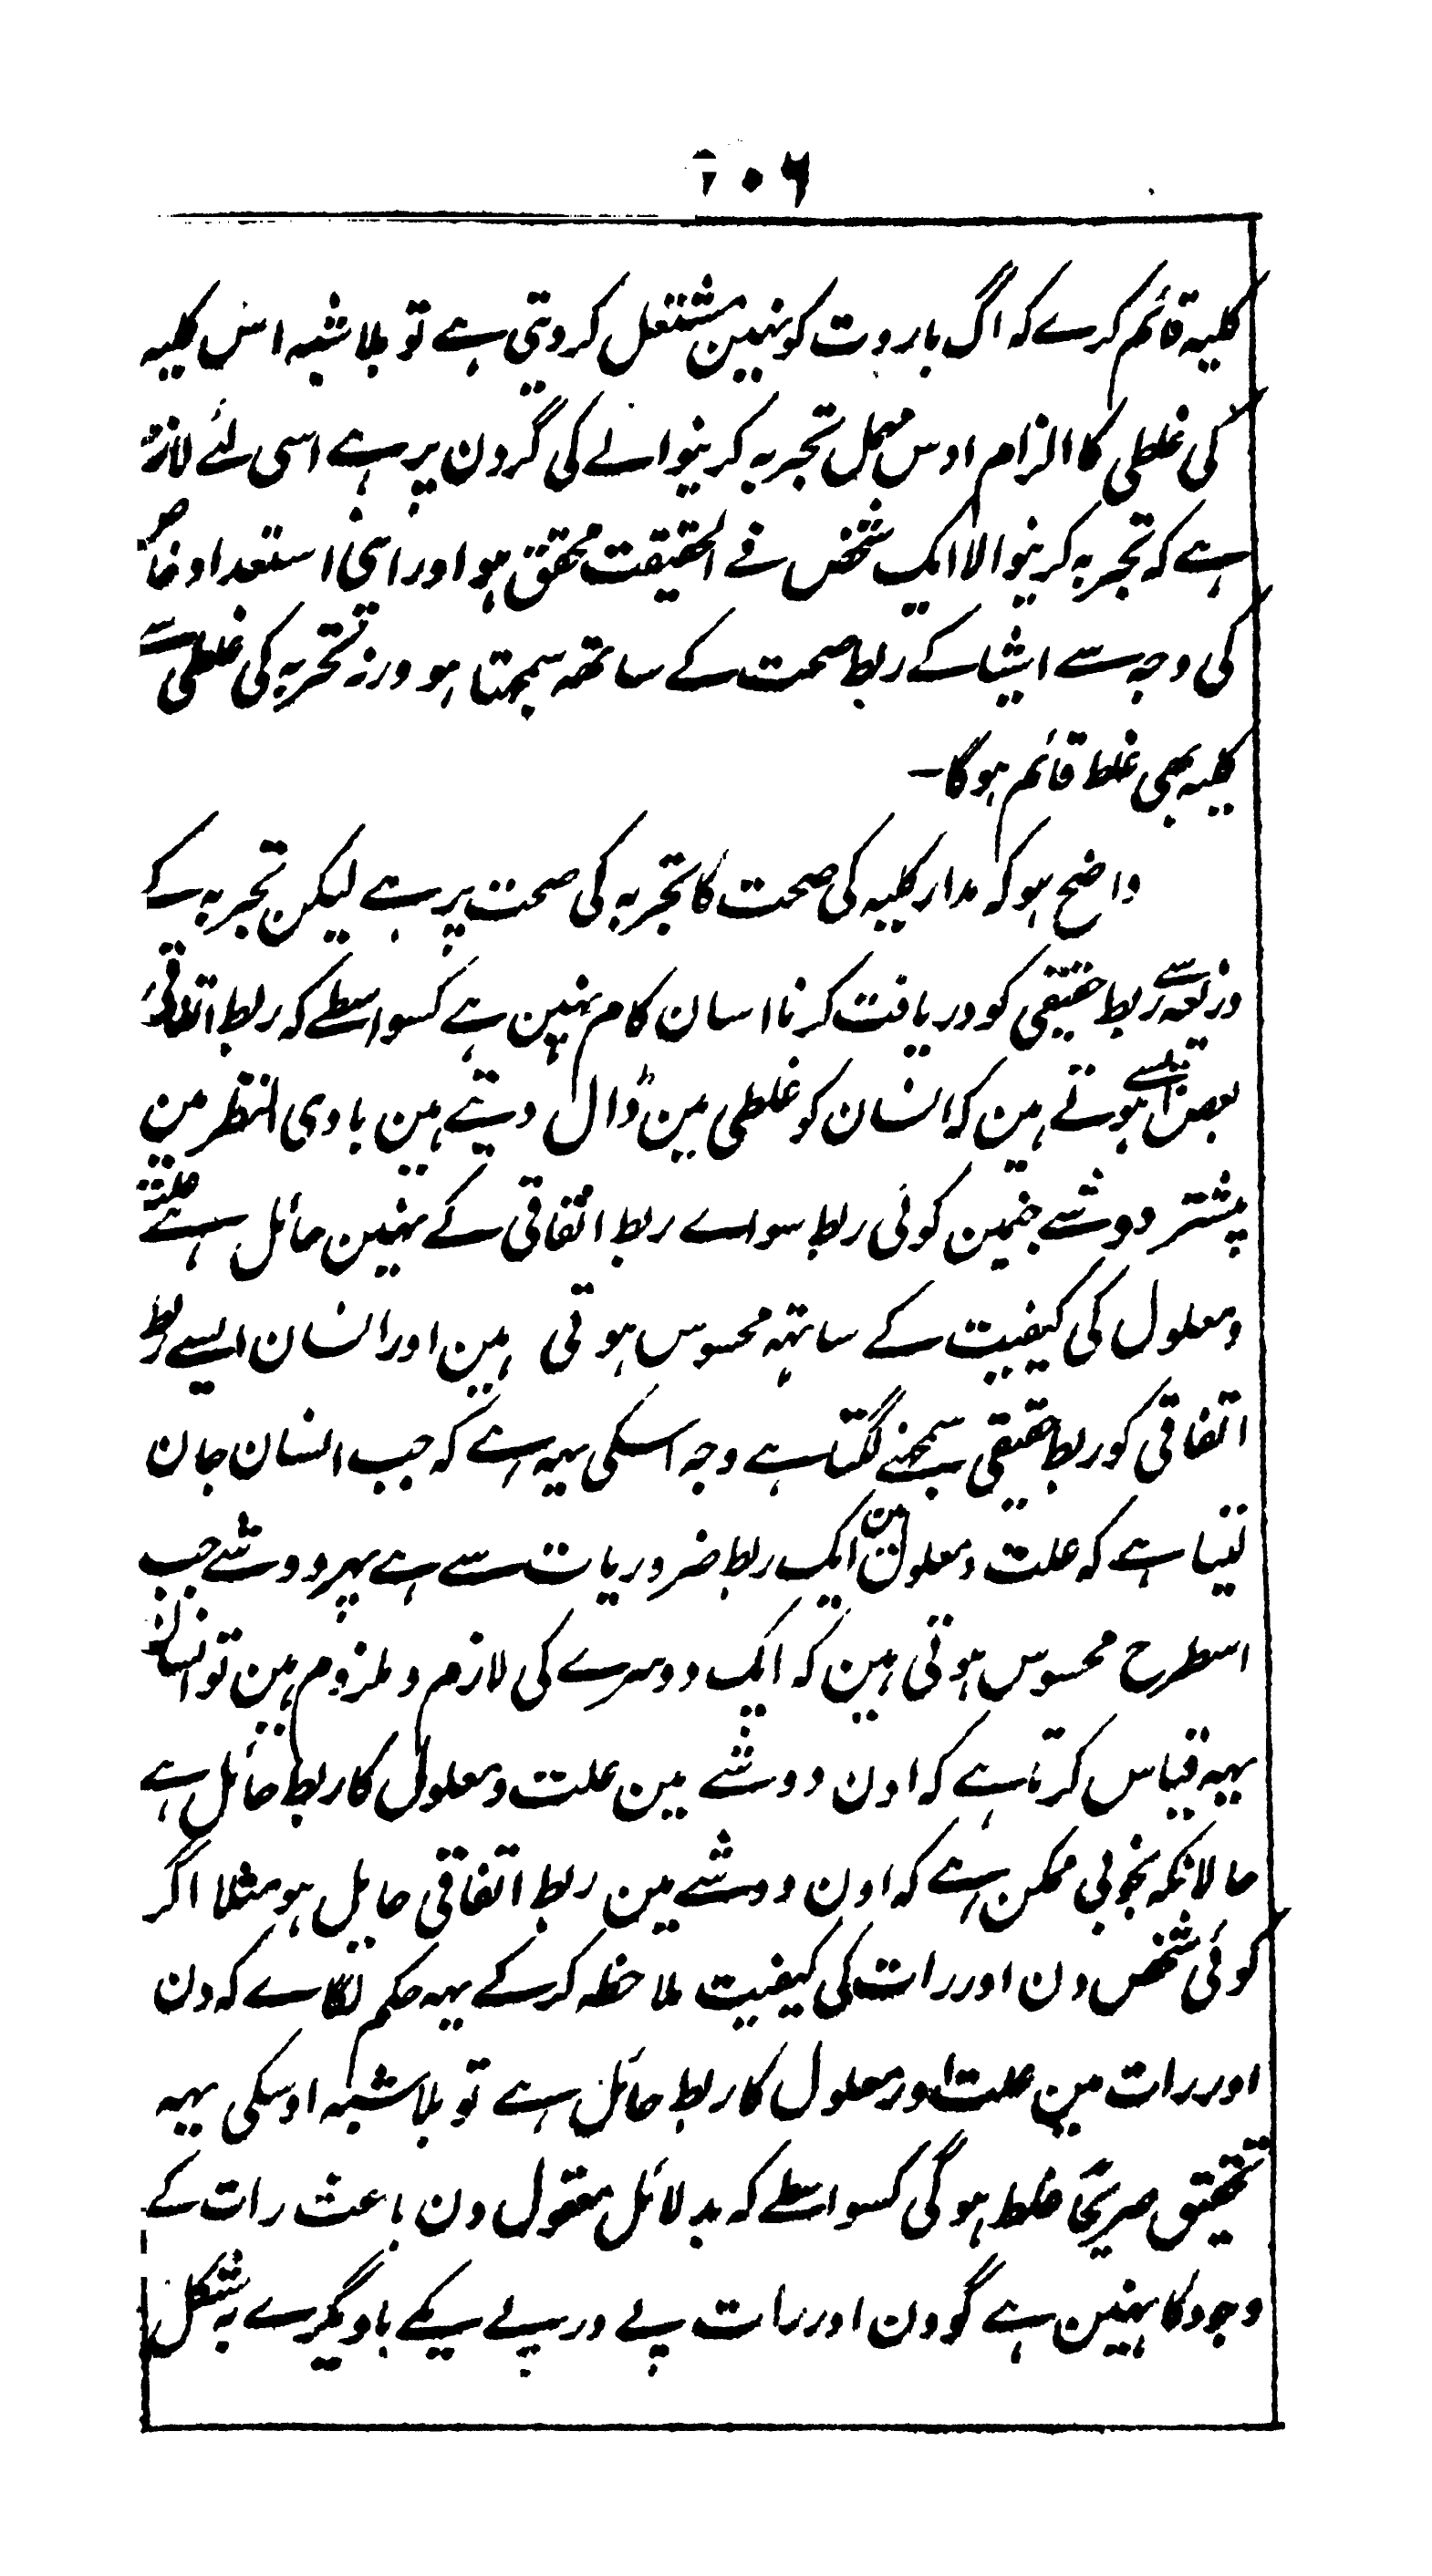 ۲۰۶
کلیہ قائم کرے کہ اگ باروت کو نہین مشتعل کر دیتی ہے تو بلا شبہ اس کلیہ
کی غلطی کا الزام اوس مہمل تجربہ کرینوالے کی گردن پر ہے اسی لئے لازم
ہے کہ تجربہ کرینوالا ایک شخص فے الحقیقت محقق ہو اور اپنی استعداد خاص
کی وجہ سے اشیا کے ربط صحت کے ساتھہ سمجہتا ہو ورنہ تجربہ کی غلطی سے
کلیہ بھی غلط قائم ہوگا۔
واضح ہو کہ مدار کلیہ کی صحت کا تجربہ کی صحت پر ہے لیکن تجربہ کے
ذریعہ سے ربط حقیقی کو دریافت کرنا اسان کام نہین ہے کسواسطے کہ ربط اتفاقی
بعض ایسے ہوتے ہین کہ انسان کو غلطی مین ڈال دیتے ہین بادی النظر مین
پیشتر دو شے جنمین کوئی ربط سواے ربط اتفاقی کے نہین حائل ہے علت
و معلول کی کیفیت کے ساتہہ محسوس ہوتی ہین اور انسان ایسے ربط
اتفاقی کو ربط حقیقی سمجھنے لگتا ہے وجہ اسکی یہہ ہے کہ جب انسان جان
لیتا ہے کہ علت و معلول مین ایک ربط ضروریات سے ہے پہر دو شے جب
اسطرح محسوس ہوتی ہین کہ ایک دوسرے کی لازم و ملزوم ہین تو انسان
یہہ قیاس کرتا ہے کہ اون دو شے مین علت و معلول کا ربط حائل ہے
حالانکہ بخوبی ممکن ہے کہ اون دو شے مین ربط اتفاقی حایل ہو مثلا اگر
کوئی شخص دن اور رات کی کیفیت ملاحظہ کر کے یہہ حکم لگاے کہ دن
اور رات مین علت اور معلول کا ربط حائل ہے تو بلا شبہ اوسکی یہہ
تحقیق صریحًا غلط ہوگی کسواسطے کہ بدلائل معقول دن باعث رات کے
وجود کا نہین ہے گو دن اور رات پے در پے یکے بادیگرے بہ شکل